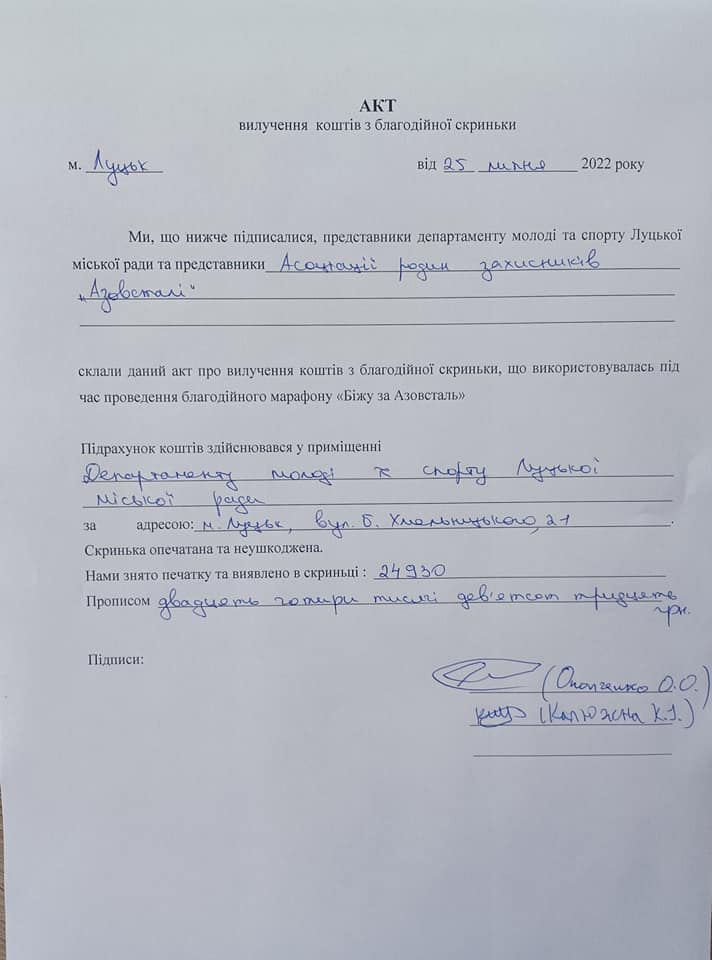 АКТ
вилучення коштів з благодійної скриньки
м. Луцьк від 25 липня 2022 року
Ми, що нижче підписалися, представники департаменту молоді та спорту Луцької
міської ради та представники Асоціації родин захисників
„Азовсталі"
склали даний акт про вилучення коштів з благодійної скриньки, що використовувалась під
час проведення благодійного марафону «Біжу за Азовсталь»
Підрахунок коштів здійснювався у приміщенні
Департаменту молоді та спорту Луцької
міської ради
за адресою: м. Луцьк, вул. Б. Хмельницького, 21.
Скринька опечатана та неушкоджена.
Нами знято печатку та виявлено в скриньці : 24930
Прописом двадцять чотири тисячі дев'ятсот тридцять
грн.
Підписи:
О.О.)
(Калюжна К.І.)